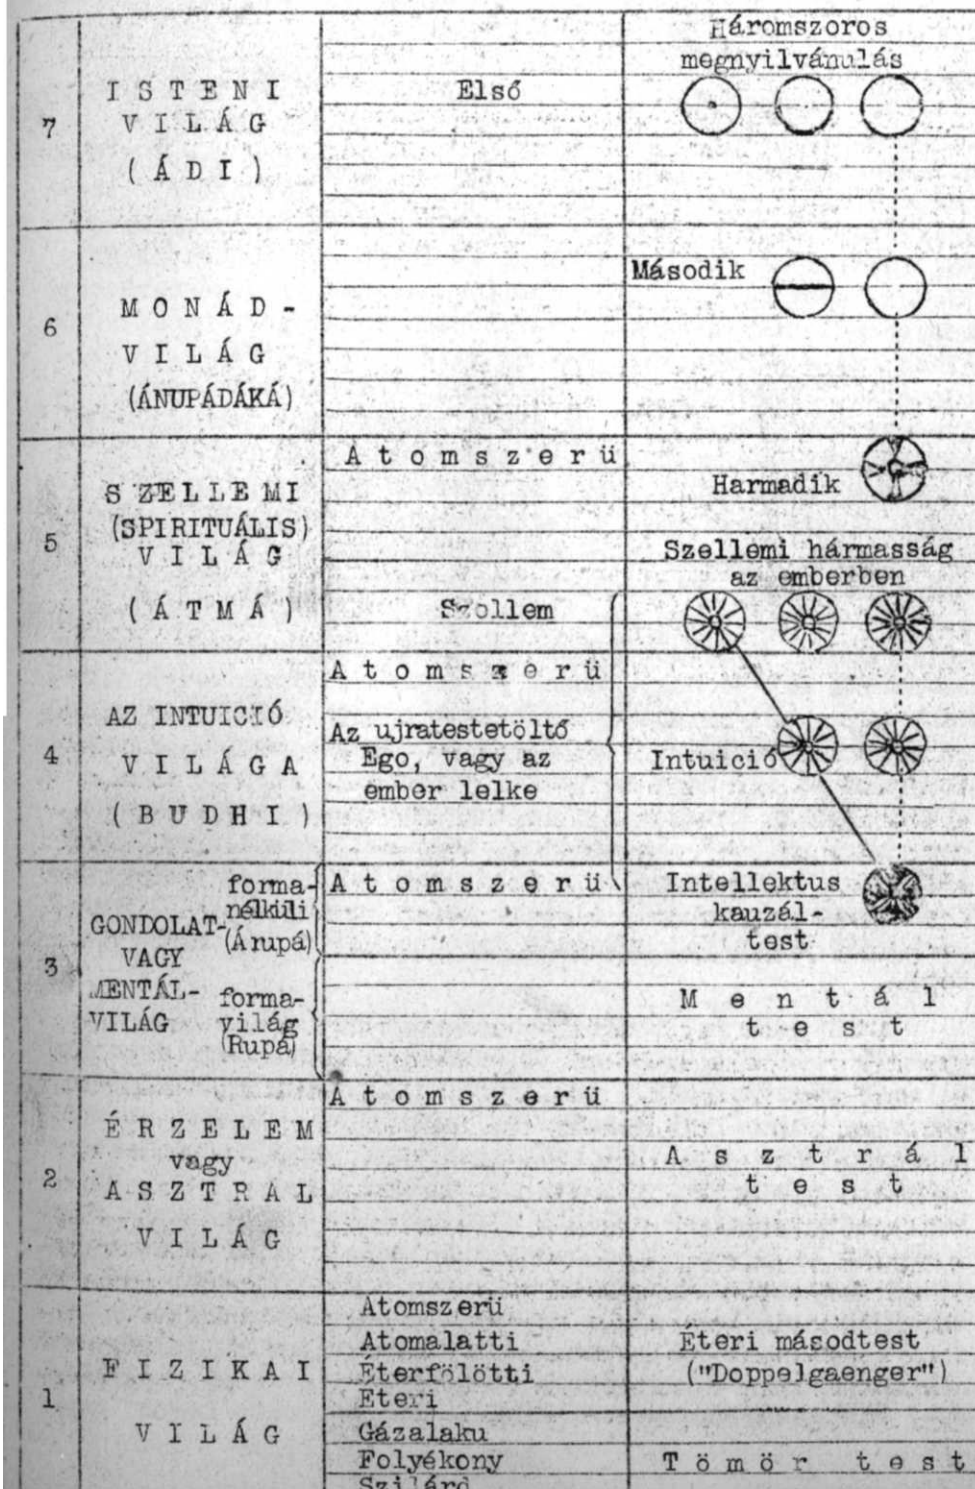 Háromszoros
megnyilvánulás
7
I S T E N I
V I L Á G
( Á D I )
Első
6
M O N Á D -
V I L Á G
(ÁNUPÁDÁKÁ)
Második
5
S ZELLEMI
(SPIRITUÁLIS)
V I L Á G
( Á T M Á )
A t o m s z e r ü
Harmadik
Szellemi hármasság
az emberben
Szollem
4
AZ INTUICIÓ
V I L Á G A
( B U D H I )
A t o m s z e r ü
Az ujratestetöltő
Ego, vagy az
ember lelke
Intuició
3
GONDOLAT-
VAGY
MENTÁL-
VILÁG
forma-
nélküli
(Árupá)
forma-
világ
(Rupá)
A t o m s z e r ü
Intellektus
kauzál-
test
M e n t á l
t e s t
2
É R Z E L E M
vagy
A S Z T R Á L
V I L Á G
A t o m s z e r ü
A s z t r á l
t e s t
1
F I Z I K A I
V I L Á G
Atomszerü
Atomalatti
Éterfölötti
Eteri
Gázalaku
Folyékony
Szilárd
Éteri másodtest
("Doppelgaenger")
T ö m ö r t e s t